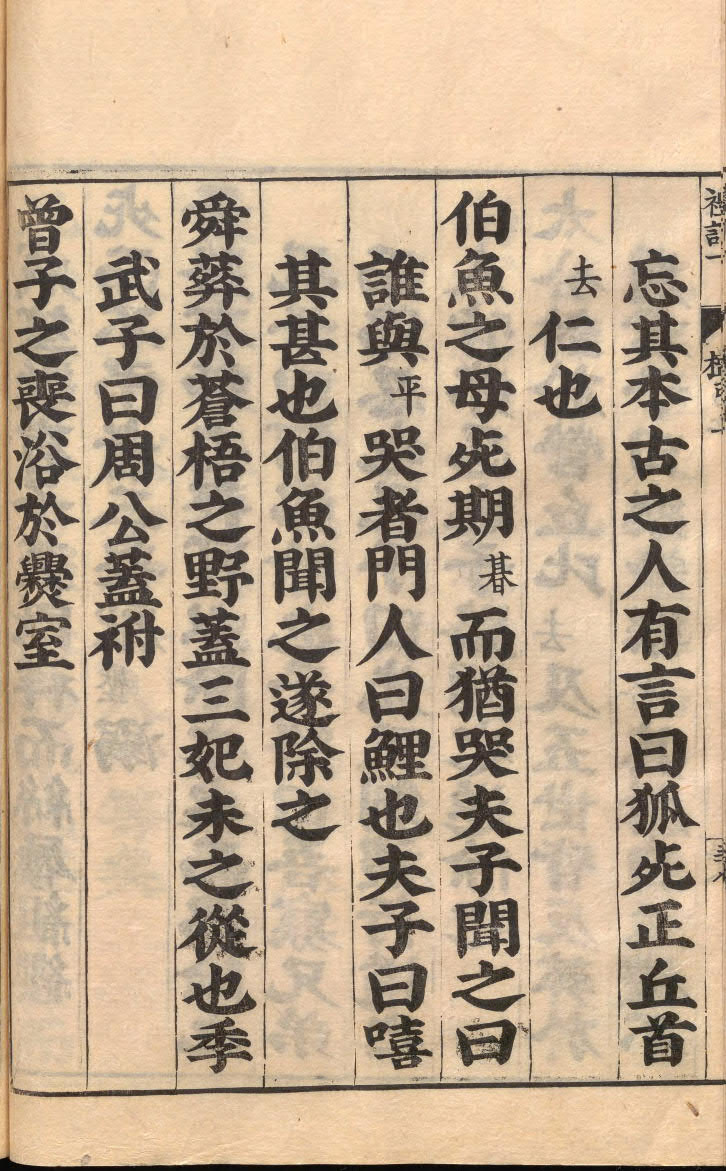 忘其本古之人有言曰狐死正丘首
去仁也
伯魚之母死期朞而猶哭夫子聞之曰
誰與平哭者門人曰鯉也夫子曰嘻
其甚也伯魚聞之遂除之
舜葬於蒼梧之野蓋三妃未之從也季
武子曰周公蓋祔
曾子之喪浴於爨室